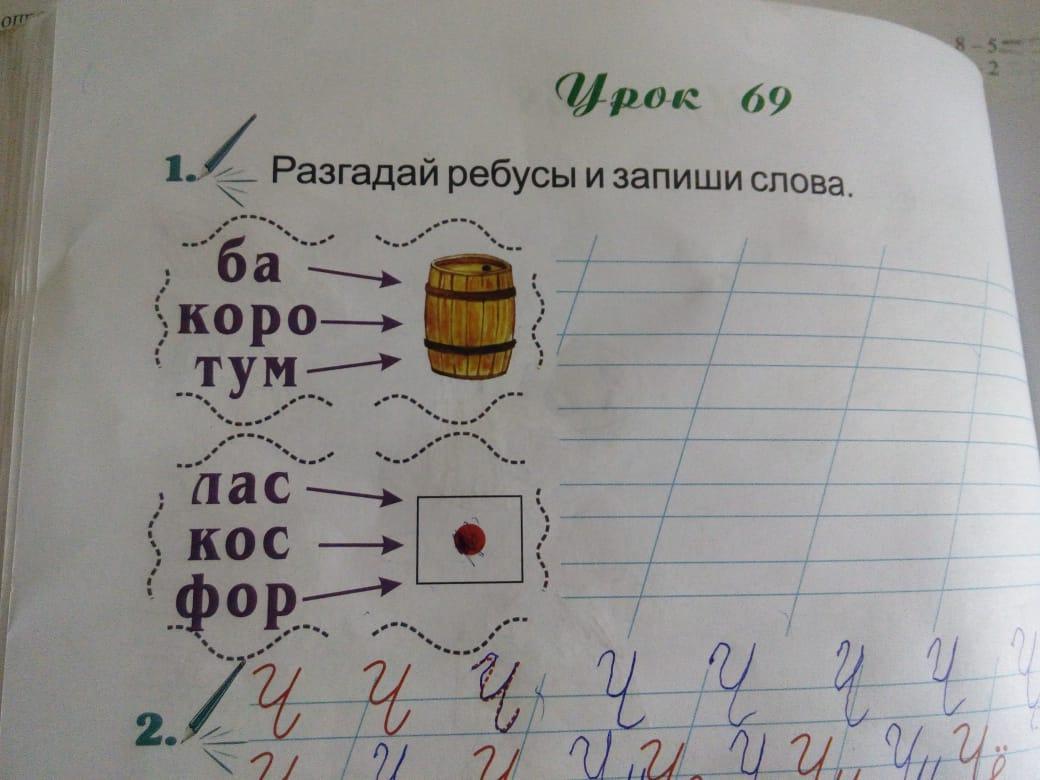 8 – 5 =
2
Урок 69
1. Разгадай ребусы и запиши слова.
ба
коро
тум
лас
кос
фор
Ч Ч Ч Ч Ч Ч Ч Ч
2.